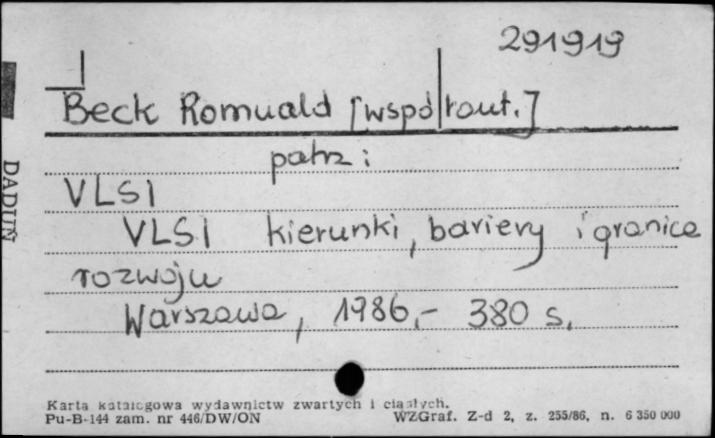 291919
Beck Romuald [współaut.]
patrz:
VLSI
VLSI kierunki, bariery i granice
rozwoju
Warszawa, 1986,- 380 s,
DADUŃ
Karta katalogowa wydawnictw zwartych i ciągłych.
Pu-B-144 zam. nr 446/DW/ON WZGraf. Z-d 2, z. 255/86, n. 6 350 000